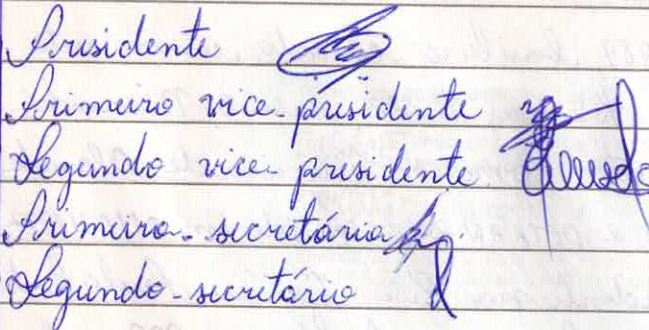 Presidente
Primeiro vice-presidente
Segundo vice-presidente
Primeira-secretária
Segundo-secretário